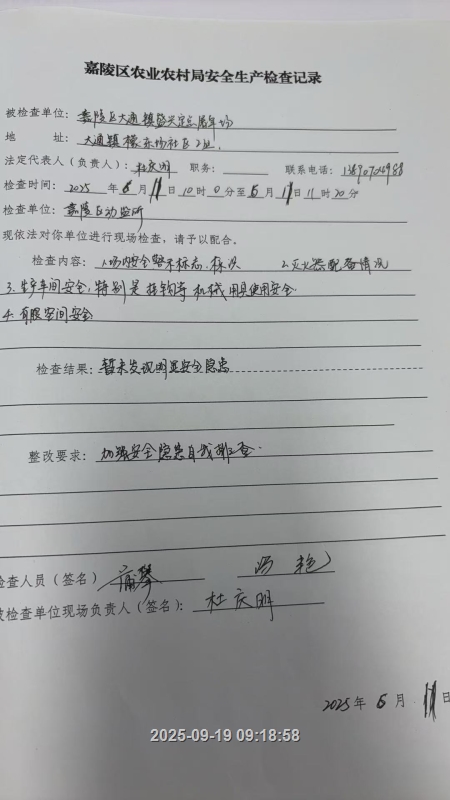 嘉陵区农业农村局安全生产检查记录
被检查单位：嘉陵区大通镇盛兴定点屠宰场
地 址：大通镇 社区2社
法定代表人（负责人）：杜庆明 职务： 联系电话：
检查时间：2025年6月11日10时0分至6月11日11时20分
检查单位：嘉陵区动监所
现依法对你单位进行现场检查，请予以配合。
检查内容：1.场内安全警示标志、标识 2.灭火器配备情况
3.生产车间安全，特别是挂钩等机械用具使用安全
4.有限空间安全
检查结果：暂未发现明显安全隐患
整改要求：加强安全隐患自我排查.
检查人员（签名） 冯艳
被检查单位现场负责人（签名）：杜庆明
2025年6月11日
2025-09-19 09:18:58